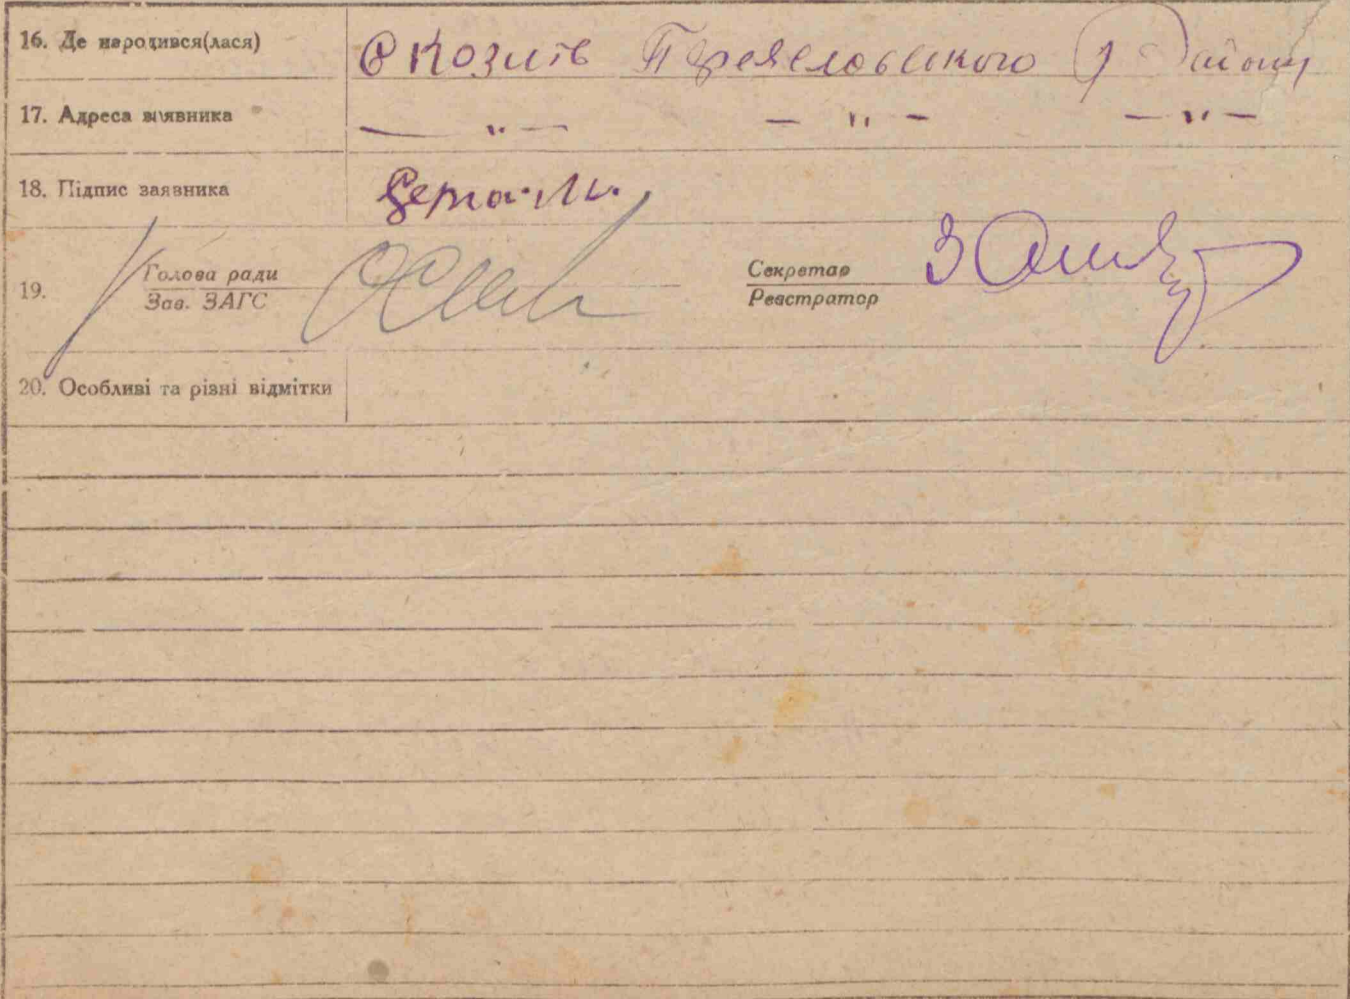 16. Де народився(лася) с Козин Переяславського Району
17. Адреса заявника — „ — — „ — — „ —
18. Підпис заявника
19. Голова ради
Зав. ЗАГС
Секретар
Реєстратор
20. Особливі та різні відмітки